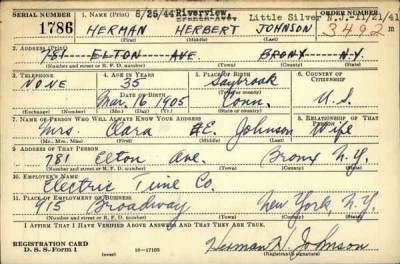 SERIAL NUMBER 1. NAME (Print) 5/25/44 Riverview, ORDER NUMBER
Little Silver N.J.-11/21/41
1786 HERMAN HERBERT JOHNSON 3492
(First) (Middle) (Last)
2. ADDRESS (Print)
781 ELTON AVE. BRONX N.Y.
(Number and street or R. F. D. number) (Town) (County) (State)
3. TELEPHONE 4. AGE IN YEARS 5. PLACE OF BIRTH 6. COUNTRY OF CITIZENSHIP
NONE 35 Saybrook
DATE OF BIRTH
Mar. 16 1905 Conn. U.S.
(Exchange) (Number) (Mo.) (Day) (Yr.) (State or country)
7. NAME OF PERSON WHO WILL ALWAYS KNOW YOUR ADDRESS 8. RELATIONSHIP OF THAT PERSON
Mrs. Clara E. Johnson Wife
(Mr., Mrs., Miss) (First) (Middle) (Last)
9. ADDRESS OF THAT PERSON
781 Elton Ave. Bronx N.Y.
(Number and street or R. F. D. number) (Town) (County) (State)
10. EMPLOYER'S NAME
Electric Time Co.
11. PLACE OF EMPLOYMENT OR BUSINESS
915 Broadway New York, N.Y.
(Number and street or R. F. D. number) (Town) (County) (State)
I AFFIRM THAT I HAVE VERIFIED ABOVE ANSWERS AND THAT THEY ARE TRUE.
REGISTRATION CARD
D. S. S. Form 1 16-17105 Herman H. Johnson
(Registrant's signature)